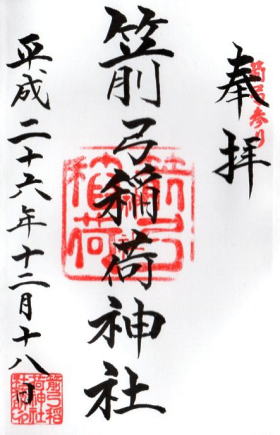 奉拝
野弓参り
箭弓稲荷神社
箭弓稲荷
平成二十六年十二月十八日
箭弓稲荷神社